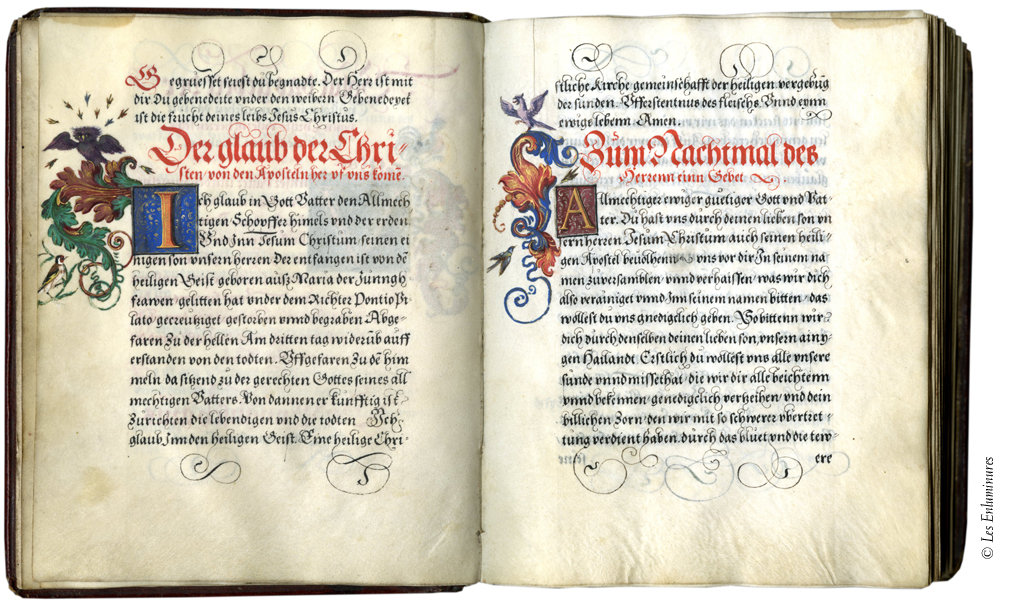 Gegruesset seiest du begnadte. Der Herr ist mit
dir Du gebenedeite vnder den weibern Gebenedeyet
ist die frucht deines leibs Jesus Christus.
Der glaub der Chri-
sten von den Aposteln her vf vns komē.
Ich glaub in Gott Vatter den Allmech
tigen Schopffer himels vnd der erden
Vnd Inn Jesum Christum seinen ei
nigen son vnsern herren Der entfangen ist von dē
heiligen Geist geboren auß Maria der Junngh
frawen gelitten hat vnder dem Richter Pontio Pi
lato gecreutziget gestorben vnnd begraben Abge-
faren Zu der hellen Am dritten tag widerüb auff
erstanden von den todten. Vffgefaren Zu dē him
meln da sitzend zu der gerechten Gottes seines all
mechtigen Vatters. Von dannen er kunfftig ist
Zurichten die lebendigen vnd die todten Ich
glaub Inn den heiligen Geist. Eine heilige Chri-
stliche Kirche gemeinschafft der heiligen vergebūg
der sunden. Vfferstentnus des fleischs Vnnd eynn
ewigs lebenn. Amen.
Zum Nachtmal des
Herrenn einn Gebet
Allmechtiger ewiger guetiger Gott vnd Vat-
ter. Du hast vns durch deinen lieben son vn
sern herren Jesum Christum auch seinen heili-
gen Apostel beuolhenn vns vor dir In seinem na
men zuversamblen vnd verhaissen was wir dich
also verainiget vnnd Inn seinem namen bitten das
wöllest du vns gnediglich geben. So bitten wir
dich durch denselben deinen lieben son, vnsern ainy-
gen Hailandt Erstlich du wöllest vns alle vnsere
sunde vnnd missethat die wir dir alle beichtenn
vnnd bekennen genediglich verzeihen vnd dein
billichen Zorn den wir mit so schwerer vbertret-
tung verdient haben durch das bluet vnd die tew-
ere
© Les Enluminures